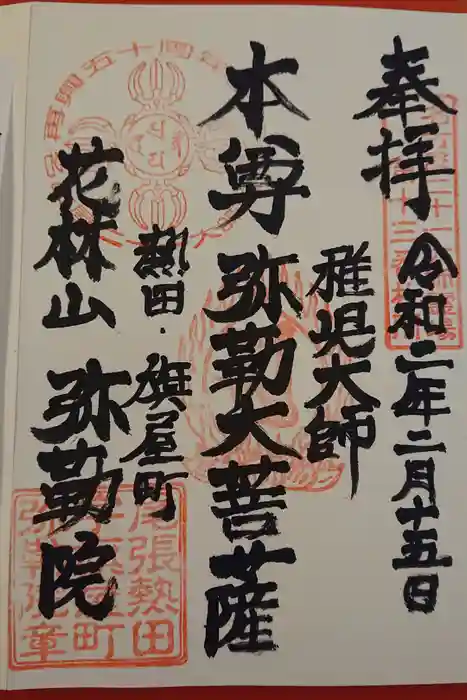 奉拝
令和二年二月十五日
稚児大師
本尊 弥勒大菩薩
熱田・旗屋町
花林山 弥勒院
尾張熱田